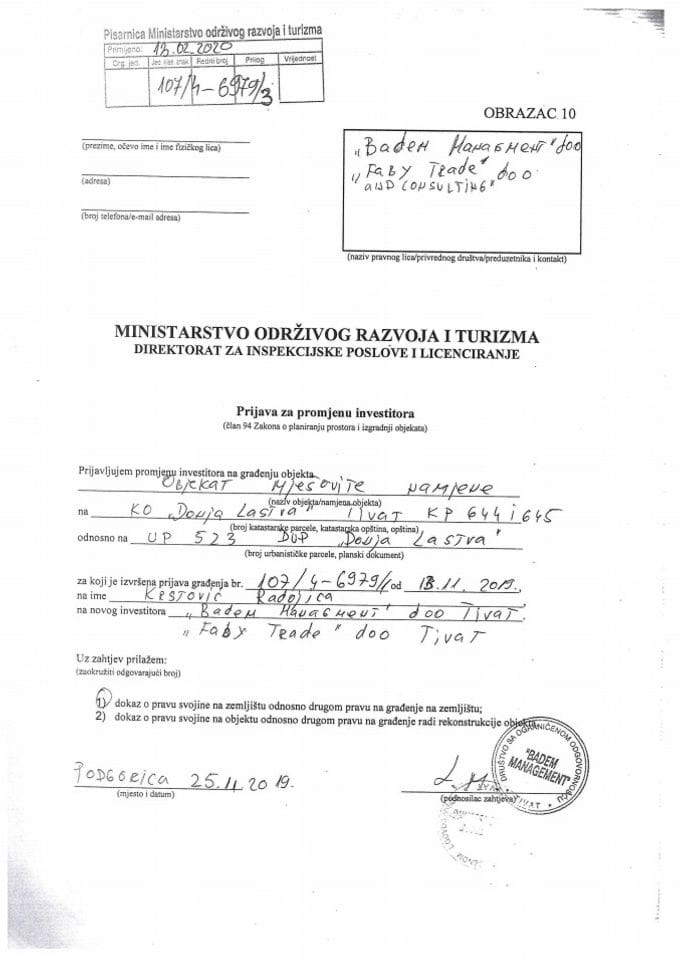 Pisarnica Ministarstvo održivog razvoja i turizma
Primljeno: 13.02.2020
Org. jed. Jed. klas. znak Redni broj Prilog Vrijednost
107/4-6979/3
OBRAZAC 10
„Badem Managment" doo
„Faby Trade" doo
and consulting"
(prezime, očevo ime i ime fizičkog lica)
(adresa)
(broj telefona/e-mail adresa)
(naziv pravnog lica/privrednog društva/preduzetnika i kontakt)
MINISTARSTVO ODRŽIVOG RAZVOJA I TURIZMA
DIREKTORAT ZA INSPEKCIJSKE POSLOVE I LICENCIRANJE
Prijava za promjenu investitora
(član 94 Zakona o planiranju prostora i izgradnji objekata)
Prijavljujem promjenu investitora na građenju objekta
Objekat mješovite namjene
(naziv objekta/namjena objekta)
na KO „Donja Lastva" Tivat KP 644 i 645
(broj katastarske parcele, katastarska opština, opština)
odnosno na UP 523 DUP „Donja Lastva"
(broj urbanističke parcele, planski dokument)
za koji je izvršena prijava građenja br. 107/4-6979/1 od 13.11.2019.
na ime Krstović Radojica
na novog investitora „Badem Managment" doo Tivat.
„Faby Trade" doo Tivat
Uz zahtjev prilažem:
(zaokružiti odgovarajući broj)
1) dokaz o pravu svojine na zemljištu odnosno drugom pravu na građenje na zemljištu;
2) dokaz o pravu svojine na objektu odnosno drugom pravu na građenje radi rekonstrukcije objekta.
Podgorica 25.11.2019.
(mjesto i datum)
(podnosilac zahtjeva)
DRUŠTVO SA OGRANIČENOM ODGOVORNOŠĆU
"BADEM MANAGEMENT"
TIVAT